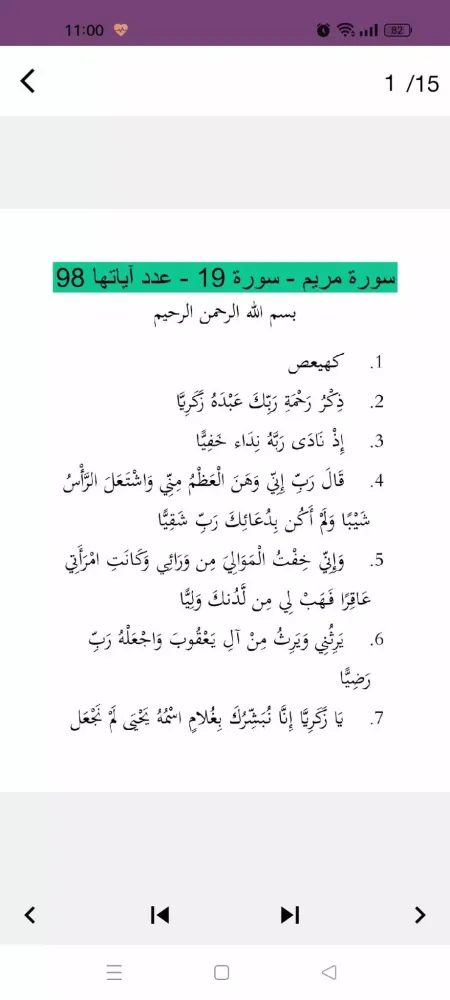 11:00
82
1 /15
سورة مريم - سورة 19 - عدد آياتها 98
بسم الله الرحمن الرحيم
1. كهيعص
2. ذِكْرُ رَحْمَةِ رَبِّكَ عَبْدَهُ زَكَرِيَّا
3. إِذْ نَادَى رَبَّهُ نِدَاء خَفِيًّا
4. قَالَ رَبِّ إِنِّي وَهَنَ الْعَظْمُ مِنِّي وَاشْتَعَلَ الرَّأْسُ
شَيْبًا وَلَمْ أَكُن بِدُعَائِكَ رَبِّ شَقِيًّا
5. وَإِنِّي خِفْتُ الْمَوَالِيَ مِن وَرَائِي وَكَانَتِ امْرَأَتِي
عَاقِرًا فَهَبْ لِي مِن لَّدُنكَ وَلِيًّا
6. يَرِثُنِي وَيَرِثُ مِنْ آلِ يَعْقُوبَ وَاجْعَلْهُ رَبِّ
رَضِيًّا
7. يَا زَكَرِيَّا إِنَّا نُبَشِّرُكَ بِغُلَامٍ اسْمُهُ يَحْيَى لَمْ نَجْعَل